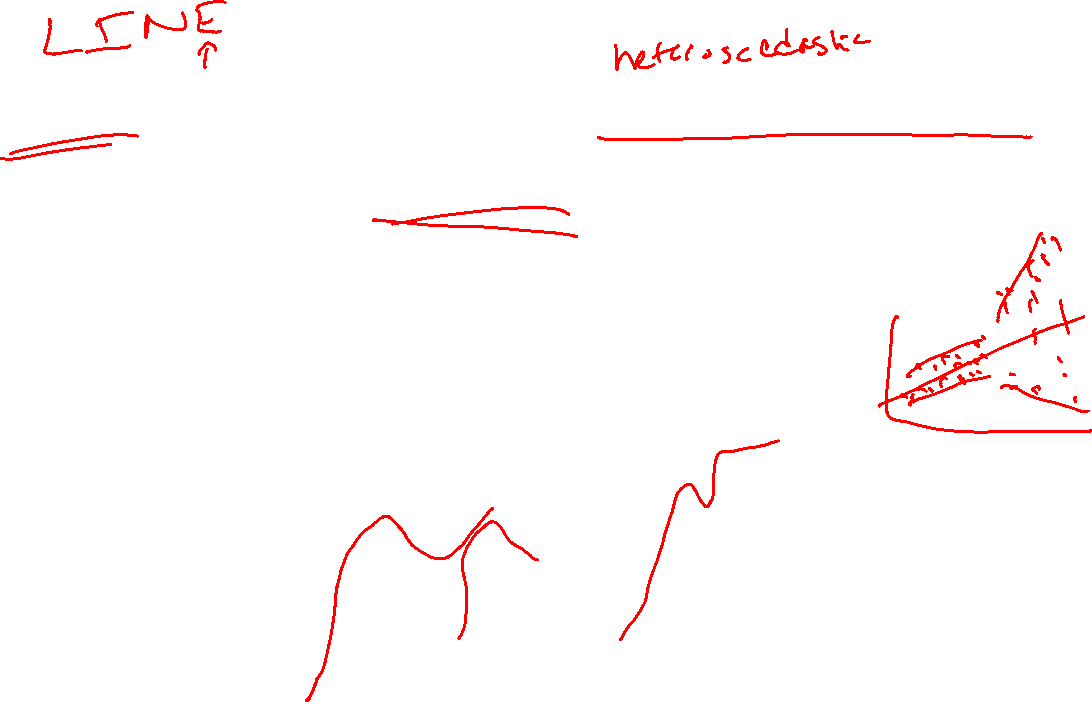 LINE
heteroscedastic